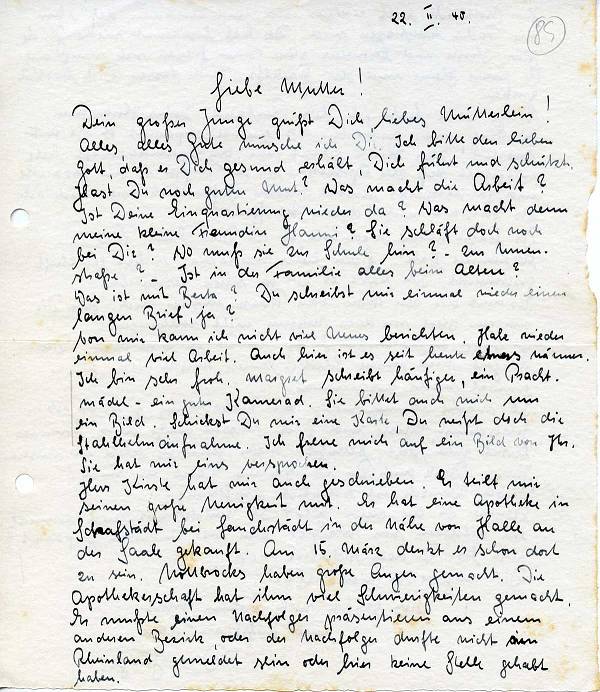 22. II. 40.
85
Liebe Mutter!
Dein großer Junge grüßt Dich, liebes Mütterlein!
Alles, alles Gute wünsche ich Dir. Ich bitte den lieben
Gott, daß er Dich gesund erhält, Dich führt und schützt.
Hast Du noch guten Mut? Was macht die Arbeit?
Ist Deine Einquartierung wieder da? Was macht denn
meine kleine Freundin Hanni? Sie schläft doch noch
bei Dir? Wo muß sie zur Schule hin? - Zur
straße? - Ist in der Familie alles beim Alten?
Was ist mit Berta? Du schreibst mir einmal wieder einen
langen Brief, ja?
Von mir kann ich nicht viel Neues berichten. Habe wieder
einmal viel Arbeit. Auch hier ist es seit heute etwas wärmer.
Ich bin sehr froh. Margret schreibt häufiger, ein Pracht-
mädel - ein guter Kamerad. Sie bittet auch mich um
ein Bild. Schickst Du mir eine Karte, Du weißt doch die
Stahlhelmaufnahme. Ich freue mich auf ein Bild von Ihr.
Sie hat mir eines versprochen.
Herr Kirste hat mir auch geschrieben. Er teilt mir
seinen große Neuigkeit mit. Er hat eine Apotheke in
Schafstädt bei Lauchstädt in der Nähe von Halle an
der Saale gekauft. Am 15. März denkt er schon dort
zu sein. Nottbrocks haben große Augen gemacht. Die
Apothekerschaft hat ihm viel Schwierigkeiten gemacht.
Er mußte einen Nachfolger präsentieren aus einem
anderen Bezirk, oder der Nachfolger durfte nicht im
Rheinland gemeldet sein oder hier keine Stelle gehabt
haben.